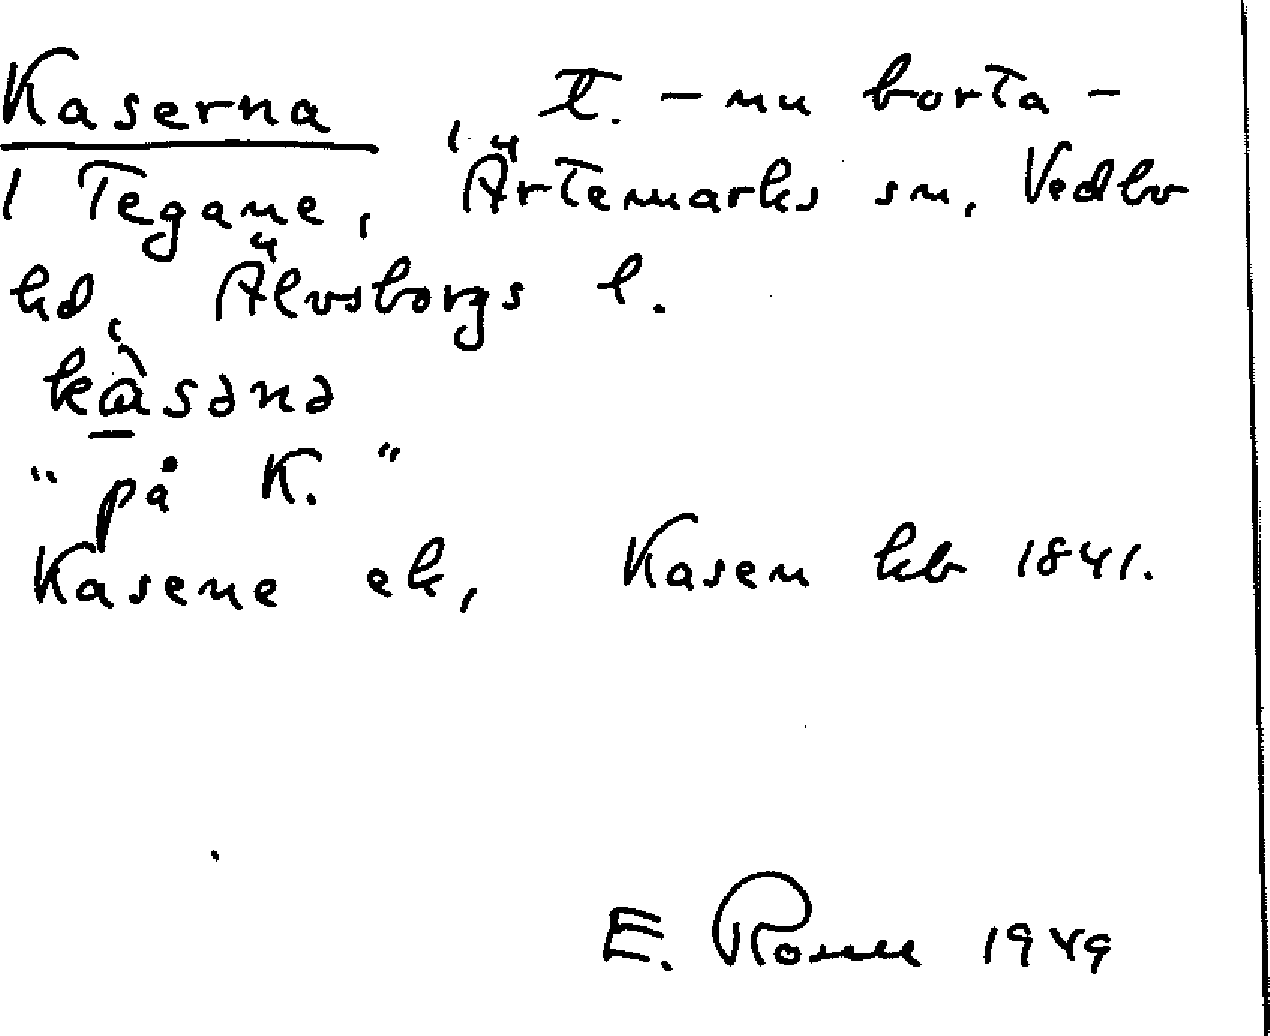 Kaserna, t. – nu borta –
i Tegane, Ärtemarks sn, Vedbo
hd, Älvsborgs l.
kàsənə
"på K."
Kasene ek, Kasen kb 1841.
E. 1949